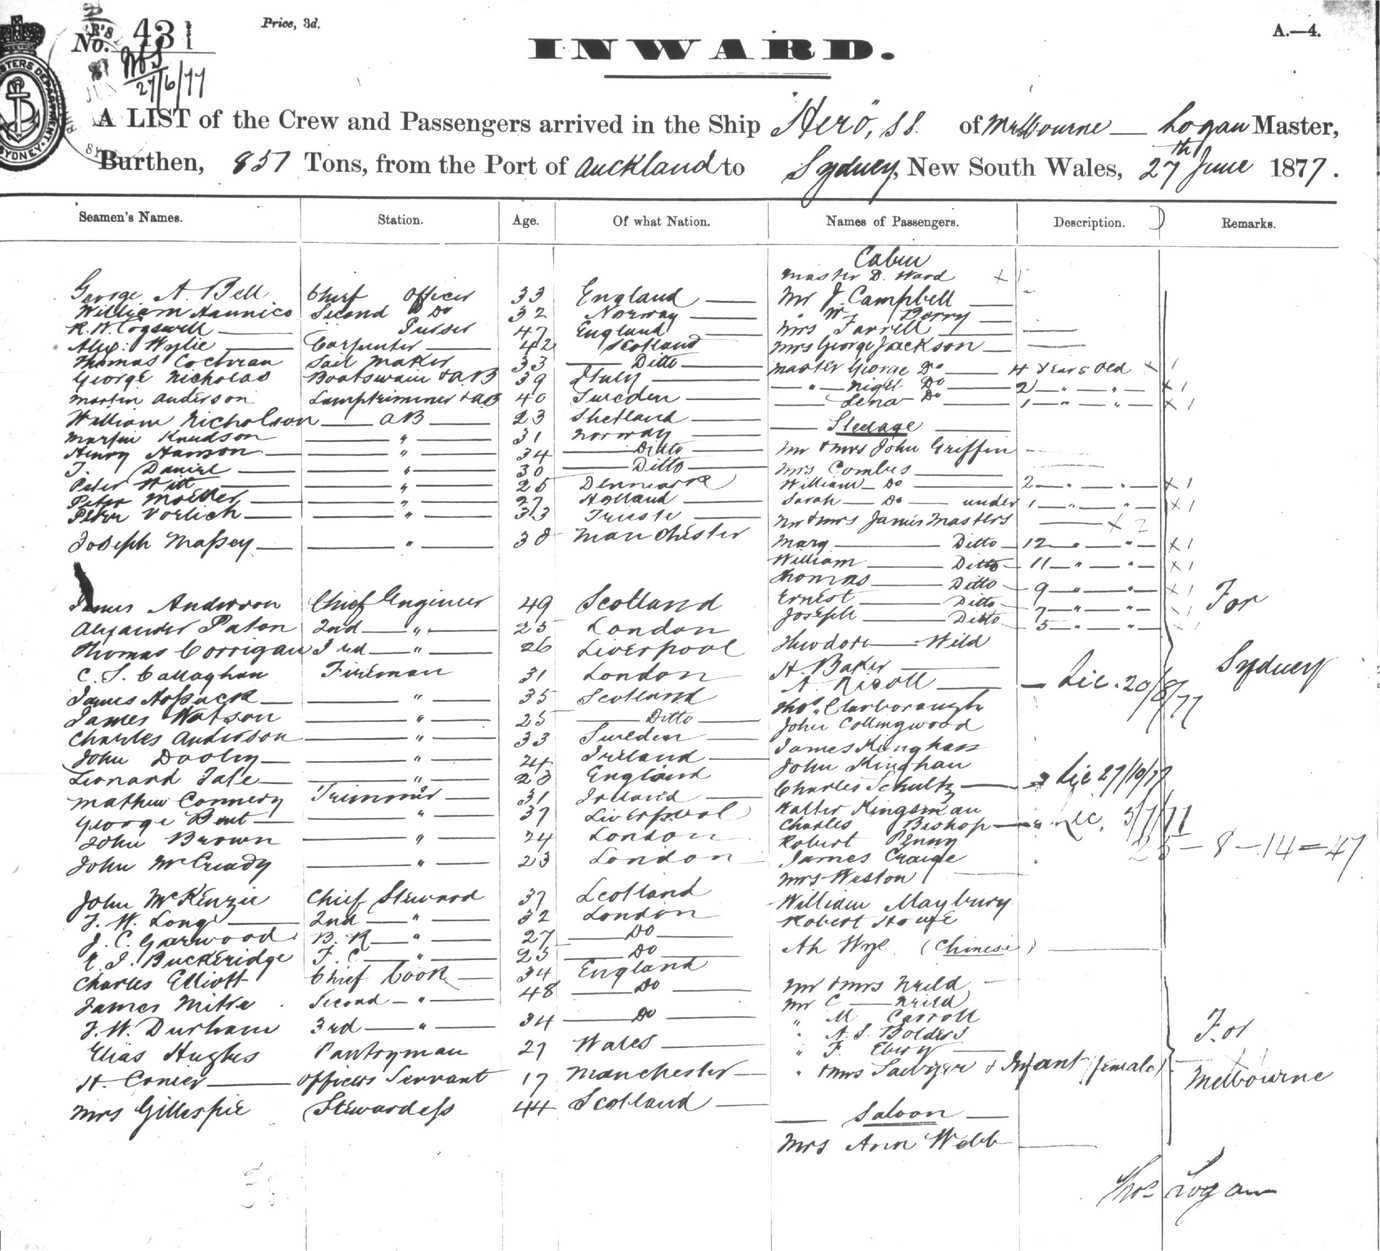 No. 431
Price, 3d.
A.—4.
27/6/77
SYDNEY
INWARD.
A LIST of the Crew and Passengers arrived in the Ship "Hero", SS. of Melbourne — Logan Master,
Burthen, 857 Tons, from the Port of Auckland to Sydney, New South Wales, 27th June 1877.
Seamen's Names. Station. Age. Of what Nation. Names of Passengers. Description. Remarks.
Cabin
Master D. Ward
George A. Bell Chief Officer 33 England Mr J. Campbell
William Do 32 Norway " W. Berry
R. W. Cogswell Purser 47 England Mrs Farrell
Alex. Wylie Carpenter 42 Scotland Mrs George Jackson
Thomas Cochran Sail Maker 33 Ditto Master George Do 4 Years Old X 1
George Nicholas Boatswain & AB 39 Italy " Nigel Do 2 " " X 1
Martin Anderson Lamptrimmer & AB 40 Sweden Lena Do 1 " " X 1
William Nicholson AB 23 Shetland Steerage
Martin Knudson " 31 Norway
Henry Hanson " 34 Ditto Mr & Mrs John Griffin
T. Daniel " 30 Ditto Mrs Combes
Peter Witt " 25 Denmark William Do 2 " " X 1
Peter Moller " 27 Holland Sarah Do under 1 " " X 1
Peter Vorlich " 33 Trieste Mr & Mrs James Masters X 2
Joseph Massey " 38 Manchester Mary Ditto 12 " " X 1
William Ditto 11 " " X 1
Thomas Ditto 9 " " X 1
James Anderson Chief Engineer 49 Scotland Ernest Ditto 7 " " X 1
Joseph Ditto 5 " "
For
Alexander Paton 2nd " 25 London
Thomas Corrigan 3rd " 26 Liverpool Theodore Wild
C. S. Callaghan Fireman 31 London H. Baker
Sydney
James Hossack " 35 Scotland A. Nicoll Lic. 20/8/77
James Watson " 25 Ditto Thos. Clarborough
Charles Anderson " 33 Sweden John Collingwood
John Dooley " 24 Ireland James Kinghan
Leonard Tate " 23 England John Kinghan
Mathew Connery Trimmer 31 Ireland Charles Schultz Lic 27/10/77
George Bent " 37 Liverpool Walter Kingsman
John Brown " 24 London Charles Bishop Lic. 3/7/77
John McCready " 23 London Robert Penny
25 - 8 - 14 = 47
James Craige
Mrs Weston
John McKenzie Chief Steward 37 Scotland William Maybury
F. W. Long 2nd " 32 London Robert Howe
J. C. Garwood B. R. " 27 Do
E. J. Buckeridge F. C. " 25 Do Ah Wye (Chinese)
Charles Elliott Chief Cook 34 England
James Mitre Second " 48 Do Mr & Mrs Neild
Mr C. Neild
F. W. Durham 3rd " 34 Do " M Carroll
" A. S. Bolders
For
Elias Hughes Pantryman 27 Wales " F. Ebery
H. Conier Officers Servant 17 Manchester " & Mrs & Infant (female)
Melbourne
Mrs Gillespie Stewardess 44 Scotland Saloon
Mrs Ann Webb
Thos Logan